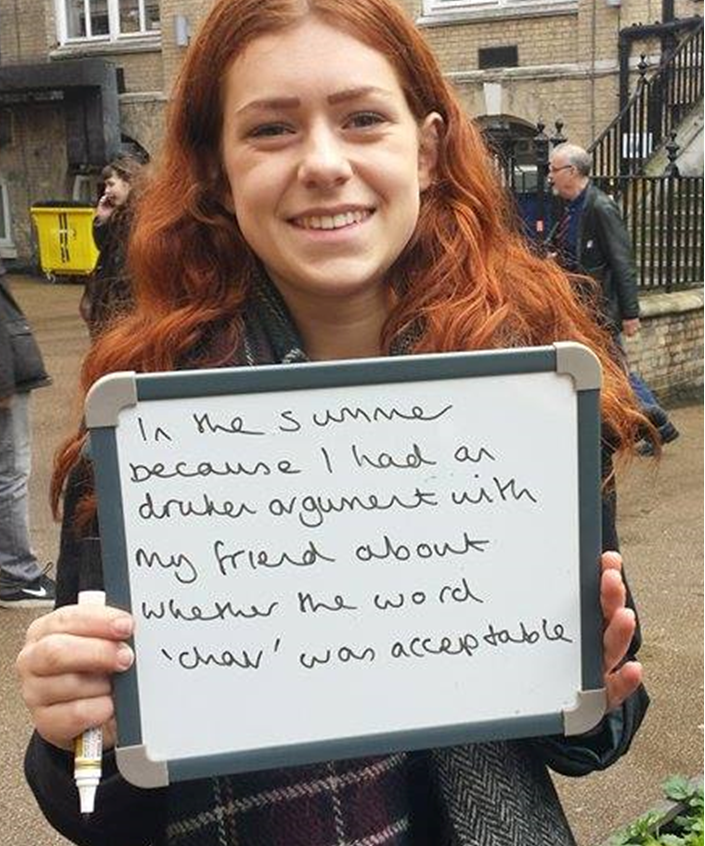 In the summer
because I had an
drunken argument with
my friend about
whether the word
'chav' was acceptable